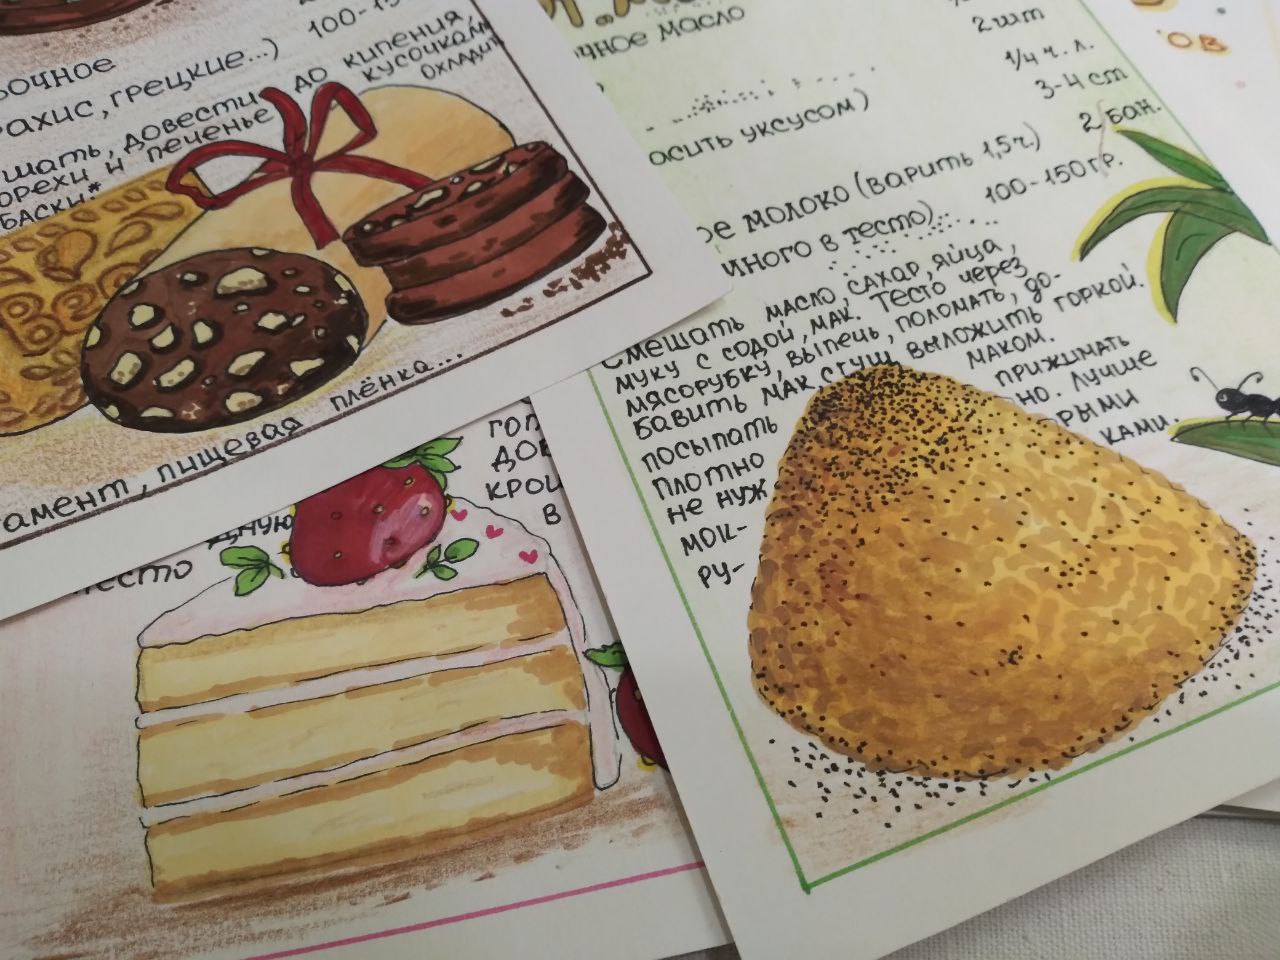 100-15
ОЧНОЕ
АХИС, ГРЕЦКИЕ...)
ШАТЬ, ДОВЕСТИ ДО КИПЕНИЯ,
ОРЕХИ И ПЕЧЕНЬЕ КУСОЧКАМИ
БАСКИ* ОХЛАДИТ
АМЕНТ, ПИЩЕВАЯ ПЛЁНКА...
ЧНОЕ МАСЛО
2 ШТ
1/4 Ч. Л.
АСИТЬ УКСУСОМ) 3-4 СТ
ОЕ МОЛОКО (ВАРИТЬ 1,5 Ч.) 2 БАН.
ИНОГО В ТЕСТО) 100-150 ГР.
СМЕШАТЬ МАСЛО, САХАР, ЯЙЦА,
МУКУ С СОДОЙ, МАК. ТЕСТО ЧЕРЕЗ
МЯСОРУБКУ, ВЫПЕЧЬ, ПОЛОМАТЬ, ДО-
БАВИТЬ МАК, СГУЩ, ВЫЛОЖИТЬ ГОРКОЙ.
ПОСЫПАТЬ МАКОМ.
ПЛОТНО ПРИЖИМАТЬ
НЕ НУЖ НО. ЛУЧШЕ
МОК- РЫМИ
РУ- КАМИ.
ОВ
ГОТ
ДОБ
КРОШ
ДНУЮ В
ТЕСТО